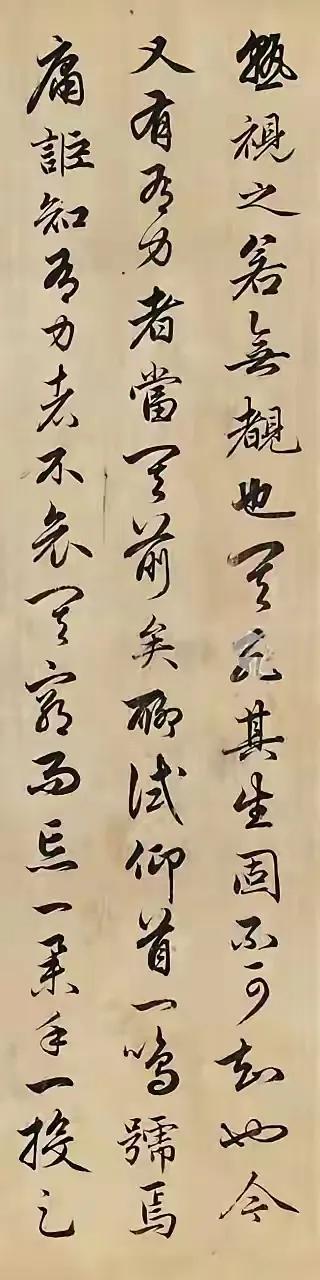 熟視之若無覩也其死其生固不可知也今
又有有力者當其前矣聊試仰首一鳴號焉
庸詎知有力者不哀其窮而忘一舉手一投之